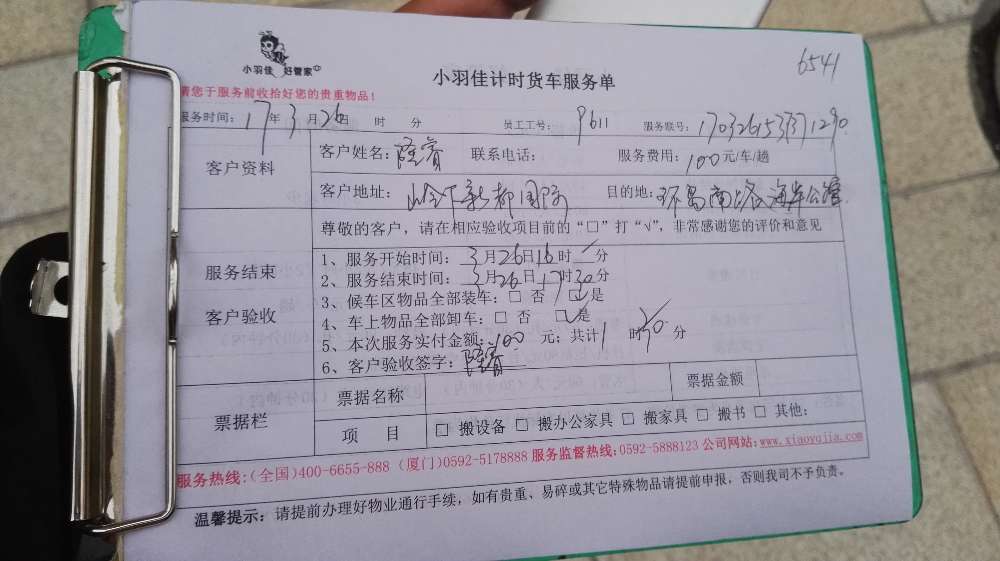 小羽佳 好管家
小羽佳计时货车服务单
6541
请您于服务前收拾好您的贵重物品！
服务时间：17年3月26日 时 分 员工工号：9611 服务账号：
客户资料
客户姓名： 联系电话： 服务费用：100元/车/趟
客户地址：岭下新都国际 目的地：环岛南路 海岸公馆
尊敬的客户，请在相应验收项目前的“□”打“√”，非常感谢您的评价和意见
服务结束
客户验收
1、服务开始时间：3月26日16时 分
2、服务结束时间：3月26日17时30分
3、候车区物品全部装车：□ 否 □ 是
4、车上物品全部卸车：□ 否 □ 是
5、本次服务实付金额：100 元；共计1时30分
6、客户验收签字：
票据栏
票据名称 票据金额
项 目 □ 搬设备 □ 搬办公家具 □ 搬家具 □ 搬书 □ 其他：
服务热线：(全国)400-6655-888 (厦门)0592-5178888 服务监督热线：0592-5888123 公司网站：www.xiaoyujia.com
温馨提示：请提前办理好物业通行手续，如有贵重、易碎或其它特殊物品请提前申报，否则我司不予负责。